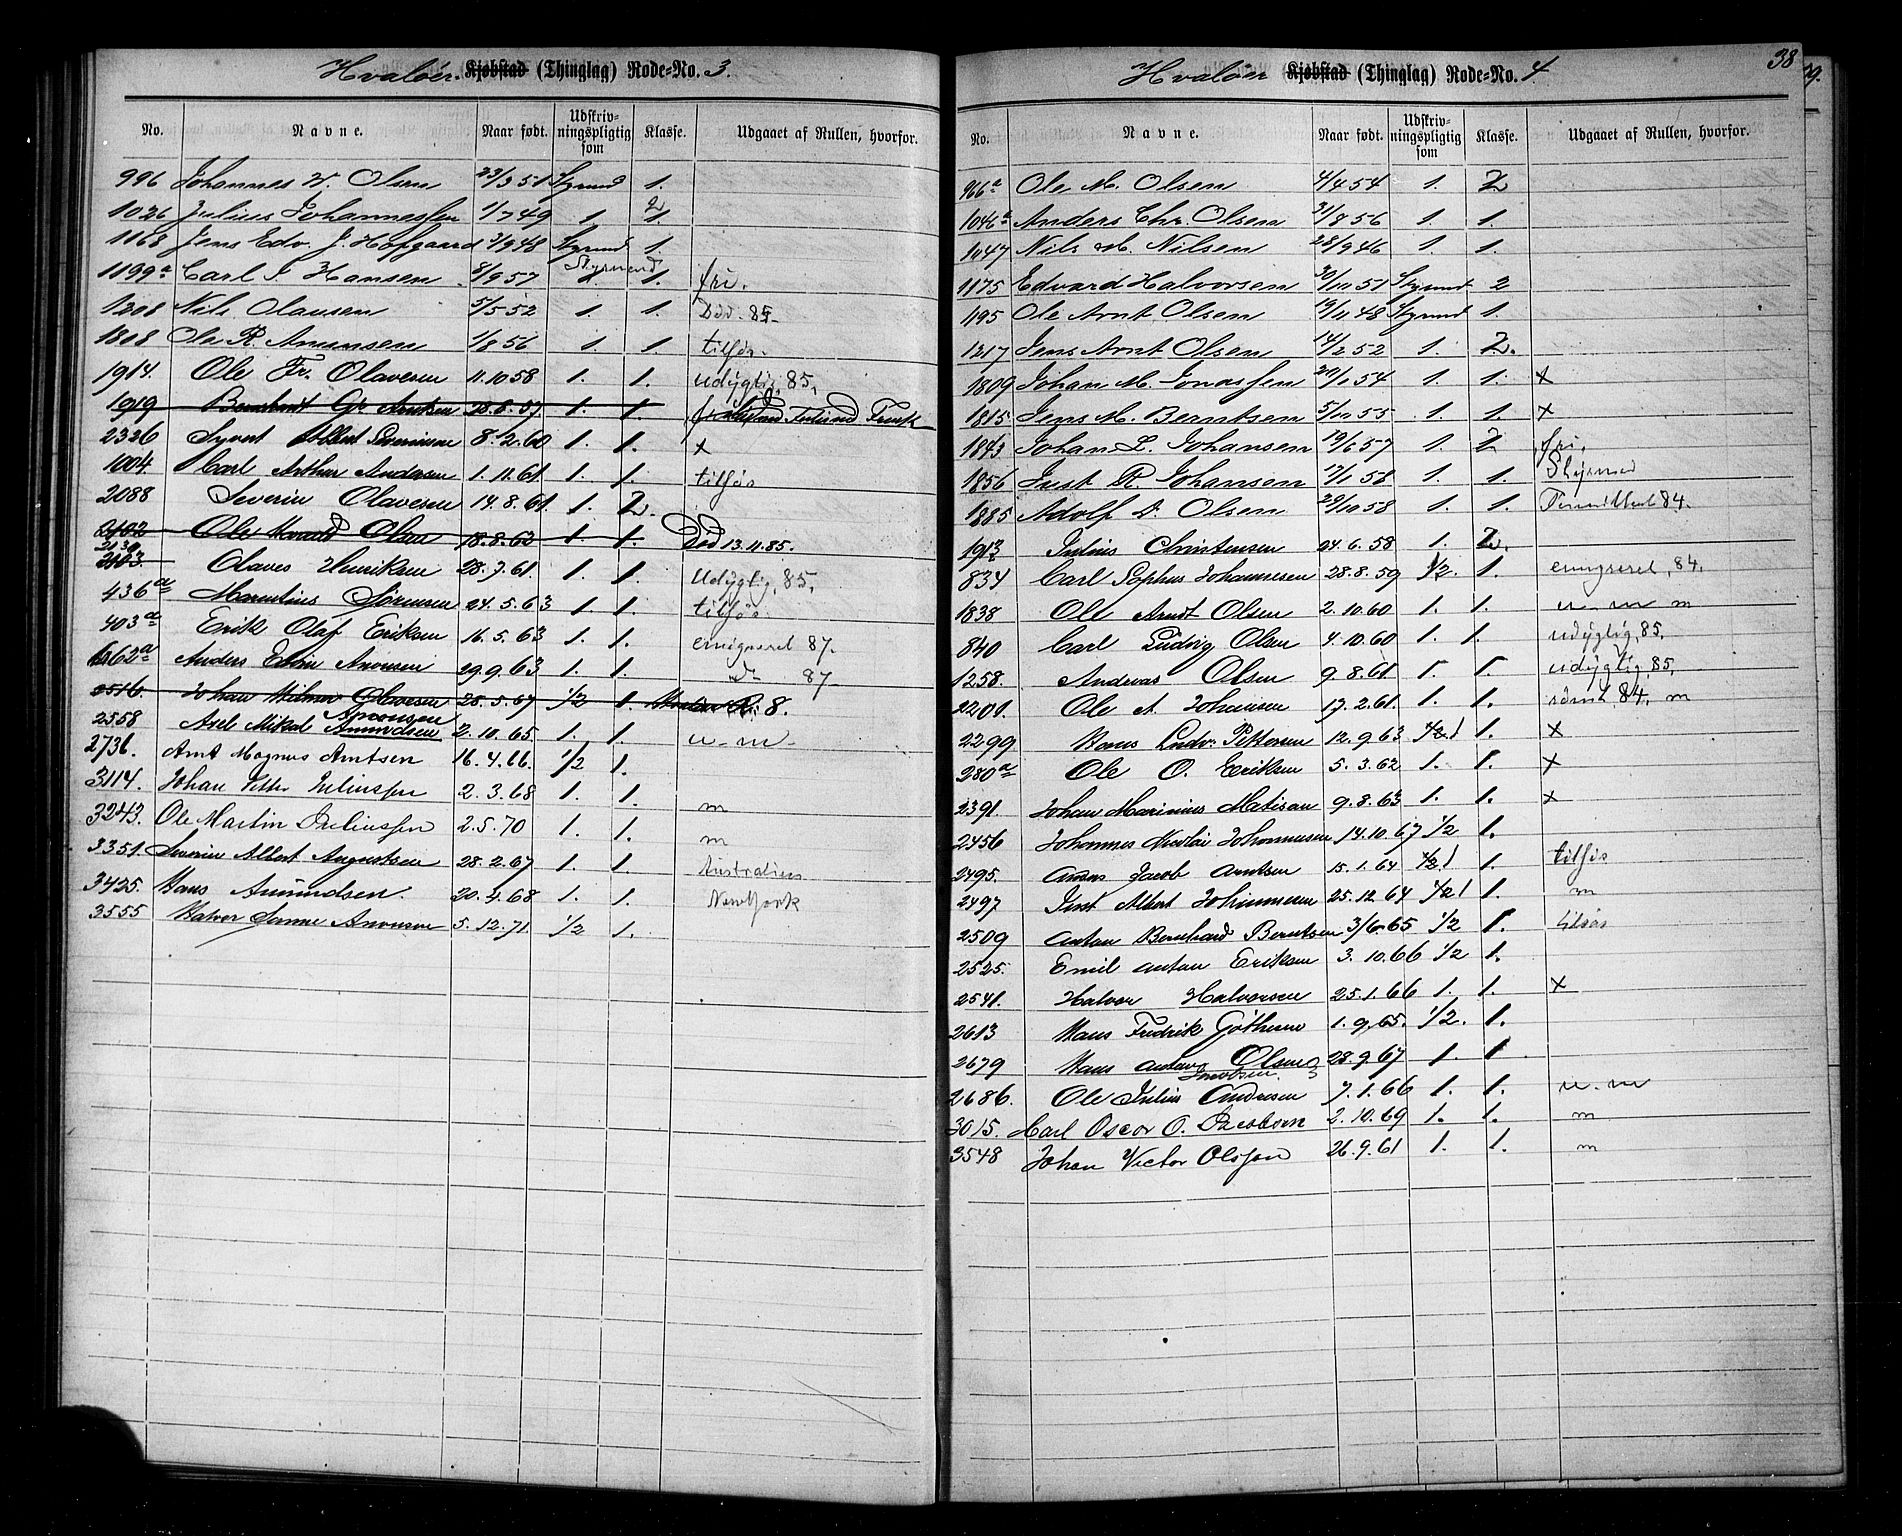 Hvaløer. Kjøbstad (Thinglag) Rode=No. 3.
No. Navne. Naar født. Udskriv-ningspligtig som Klasse. Udgaaet af Rullen, hvorfor.
996 Johannes W. Olsen 23/3 51 Styrmd 1.
1026 Julius Johannessen 1/7 49 1 2 1.
1168 Jens Edv. J. Hopgaard 3/9 48 Styrmd 1
1199a Carl F. Hansen 8/9 57 Styrmand 1. fri.
1208 Nils Olausen 5/5 52 1. 1. Död. 85
1808 Ole R. Amunsen 1/8 56 1. 1. tilsjös.
1914. Ole Fr. Olavesen 11.10 58 1. 1. udygtig 85,
1919 Bernhardt Gr. Arntsen 28.8.57 1. 1
2326 Syvert Albert Severinsen 8.2.60 1. 1. x
1004 Carl Arthur Andersen 1.11.61 1. 1. tilsjös
2088 Severin Olavesen 14.8.61 1. 2.
2102 Ole Olsen 18.8.63 1. 1. Död 13.11.85.
2130 2103. Olaves Henriksen 28.7.61. 1. 1. Udygtig, 85,
436a Marentius Sörensen 24.5.63 1. 1. tilsjös
403a Erik Olaf Eriksen 16.5.63 1. 1. emigreret 87.
662a Anders Edvin Aronsen 29.9.63 1. 1. do 87
2516. Johan Hilmar Olavesen 28.5.67 1/2 1. 8.
2558 Axel Mikal Amundsen Aronsen 2.10.65 1. 1. u. m.
2736. Arnt Magnus Arntsen 16.4.66. 1/2 1.
3114. Johan Peter Juliussen 2.3.68 1. 1. m
3243. Ole Martin Juliussen 2.5.70 1. 1. m
3351. Severin Albert Augustsen 28.2.67 1. 1. Australien
3425. Hans Amundsen. 20.4.68 1. 1. New York
3555 Halvor Aronsen 5.12.71. 1/2 1.
38
Hvaløer Kjøbstad (Thinglag) Rode=No. 4
No. Navne. Naar født. Udskriv-ningspligtig som Klasse. Udgaaet af Rullen, hvorfor.
966a Ole M. Olsen 4/4 54 1. 2
1046a Anders Chr. Olsen 31/8 56 1. 1.
1047 Nils M. Nilsen 28/9 46 1. 1.
1175 Edvard Halvorsen 30/10 51 Styrmd 2
1195 Ole Arnt Olsen 19/11 48 Styrmd 1.
1217 Jens Arnt Olsen 14/2 52 1. 2.
1809 Johan M. Jonassen 21/1 54 1. 1. x
1815. Jens M. Berntsen 5/10 55 1. 1. x
1843 Johan L. Johansen 19/6 57 1. 2 fri.
1856 Just R. Johansen 17/1 58 1. 1. Styrmd
1885 Adolf A. Olsen 29/10 58 1. 1. 84.
1913 Julius Christensen 24.6.58 1. 2.
834 Carl Sophus Johannesen 28.8.59 1/2. 1. emigreret, 84.
1838 Ole Arndt Olsen 2.10.60 1. 1. u. m m
840 Carl Ludvig Olsen 4.10.60 1. 1. udygtig, 85,
1258. Andreas Olsen 9.8.61 1. 1. udygtig, 85,
2201. Ole A. Johansen 17.2.61. 1. 1. römt 84. m
2299 Hans Ludv. Pettersen 12.9.63 1/2 1 1. x
280a Ole O. Eriksen 5.3.62 1. 1. x
2391. Johan Marinius Matisen 9.8.63 1. 1. x
2456 Johannes Nicolai Johannesen 14.10.67 1/2 1.
2495. Jacob Arntsen 15.1.64 1/2 1 1. tilsjös
2497 Just Albert Johannesen 25.12.64 1/2 1 1. m
2509 Anton Bernhard Berntsen 3/6.65 1/2 1. tilsjös
2525. Emil Anton Eriksen 3.10.66 1/2 1.
2541. Halvor Halvorsen 25.1.66 1. 1. x
2613 Hans Fredrik Göthesen 1.9.65. 1/2. 1.
2679 Hans Gustav Olsen 28.9.67 1. 1
Jacobsen.
2686. Ole Julius Andresen 7.1.66 1. 1. u. m
3015. Carl Oscar O. Jacobsen 2.10.69 1. 1. m
3548 Johan Victor Olssen 26.9.61 1. 1. m